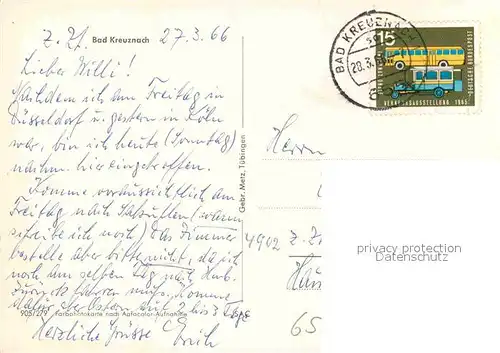 z. Zt. Bad Kreuznach 27.3.66
Lieber Willi!
Nachdem ich am Freitag in
Düsseldorf u. gestern in Köln
war, bin ich heute (Sonntag)
nachm. hier eingetroffen.
Komme voraussichtlich am
Freitag nach Salzuflen (wann
schreibe ich noch) Das Zimmer
bestelle aber bitte nicht, da ich
noch am selben Tag nach
zurück fahren muß. Komme
dafür über Ostern auf 2 bis 3 Tage
Herzliche Grüsse Erich
905/279 Farbphotokarte nach Agfacolor-Aufnahme
Gebr. Metz, Tübingen
BAD KREUZNACH
28.3.
15
VERKEHRSAUSSTELLUNG 1965
DEUTSCHE BUNDESPOST
Herrn
4902
privacy protection
Datenschutz
65